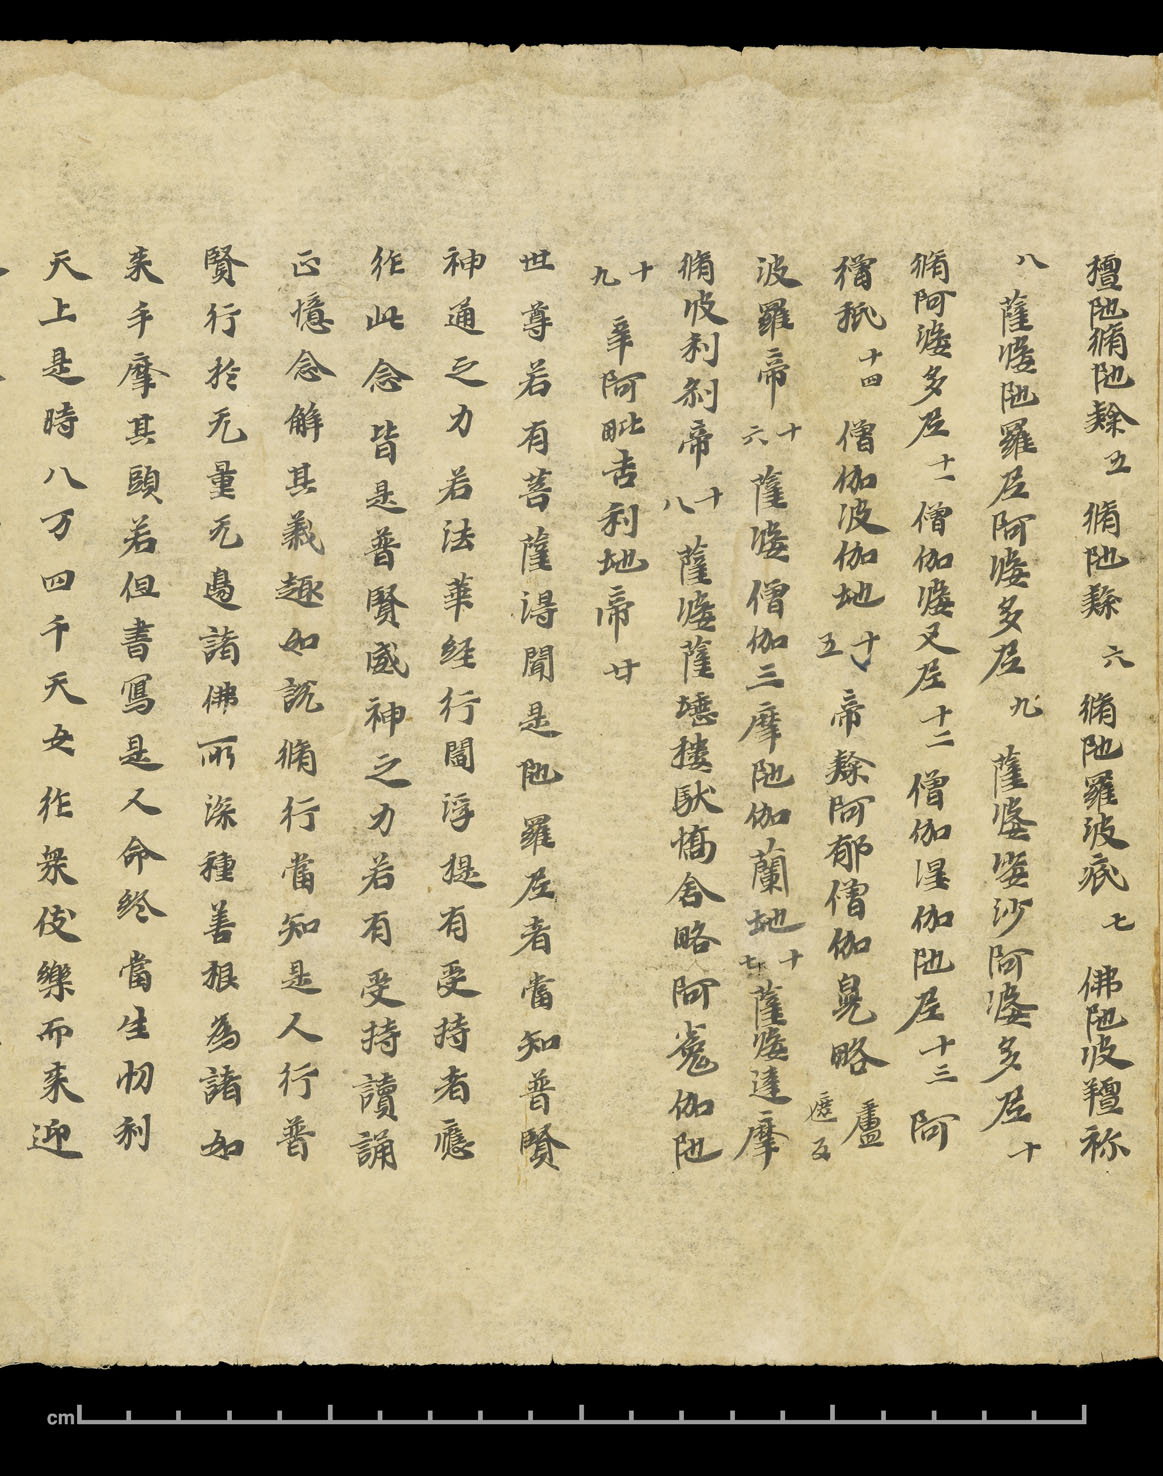 擅陁脩陁䅉五脩陁䅉六脩陁羅波疧七佛陁波羶祢
八薩婆陁羅尼阿婆多尼九薩婆婆沙阿婆多尼十
脩阿婆多尼十一僧伽婆叉尼十二僧伽涅伽陁尼十三阿
僧祇十四僧伽波伽地十五帝䅉阿郁僧伽晃略盧遮反
波羅帝十六薩婆僧伽三摩陁伽蘭地十七薩婆達摩
脩波利剎帝十八薩婆薩埵樓馱憍舍略阿㝹伽陁
十九辛阿毗吉利地帝廿
世尊若有菩薩得聞是陁羅尼者當知普賢
神通之力若法華經行閻浮提有受持者應
作此念皆是普賢威神之力若有受持讀誦
正憶念解其義趣如說脩行當知是人行普
賢行於无量无邊諸佛所深種善根為諸如
来手摩其頭若但書寫是人命終當生忉利
天上是時八万四千天女作衆伎樂而来迎